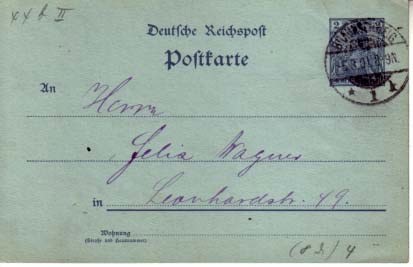 xx b II
Deutsche Reichspost
Postkarte
An
Herrn
Felix Wagner
in Leonhardstr. 49.
Wohnung
(Straße und Hausnummer)
4